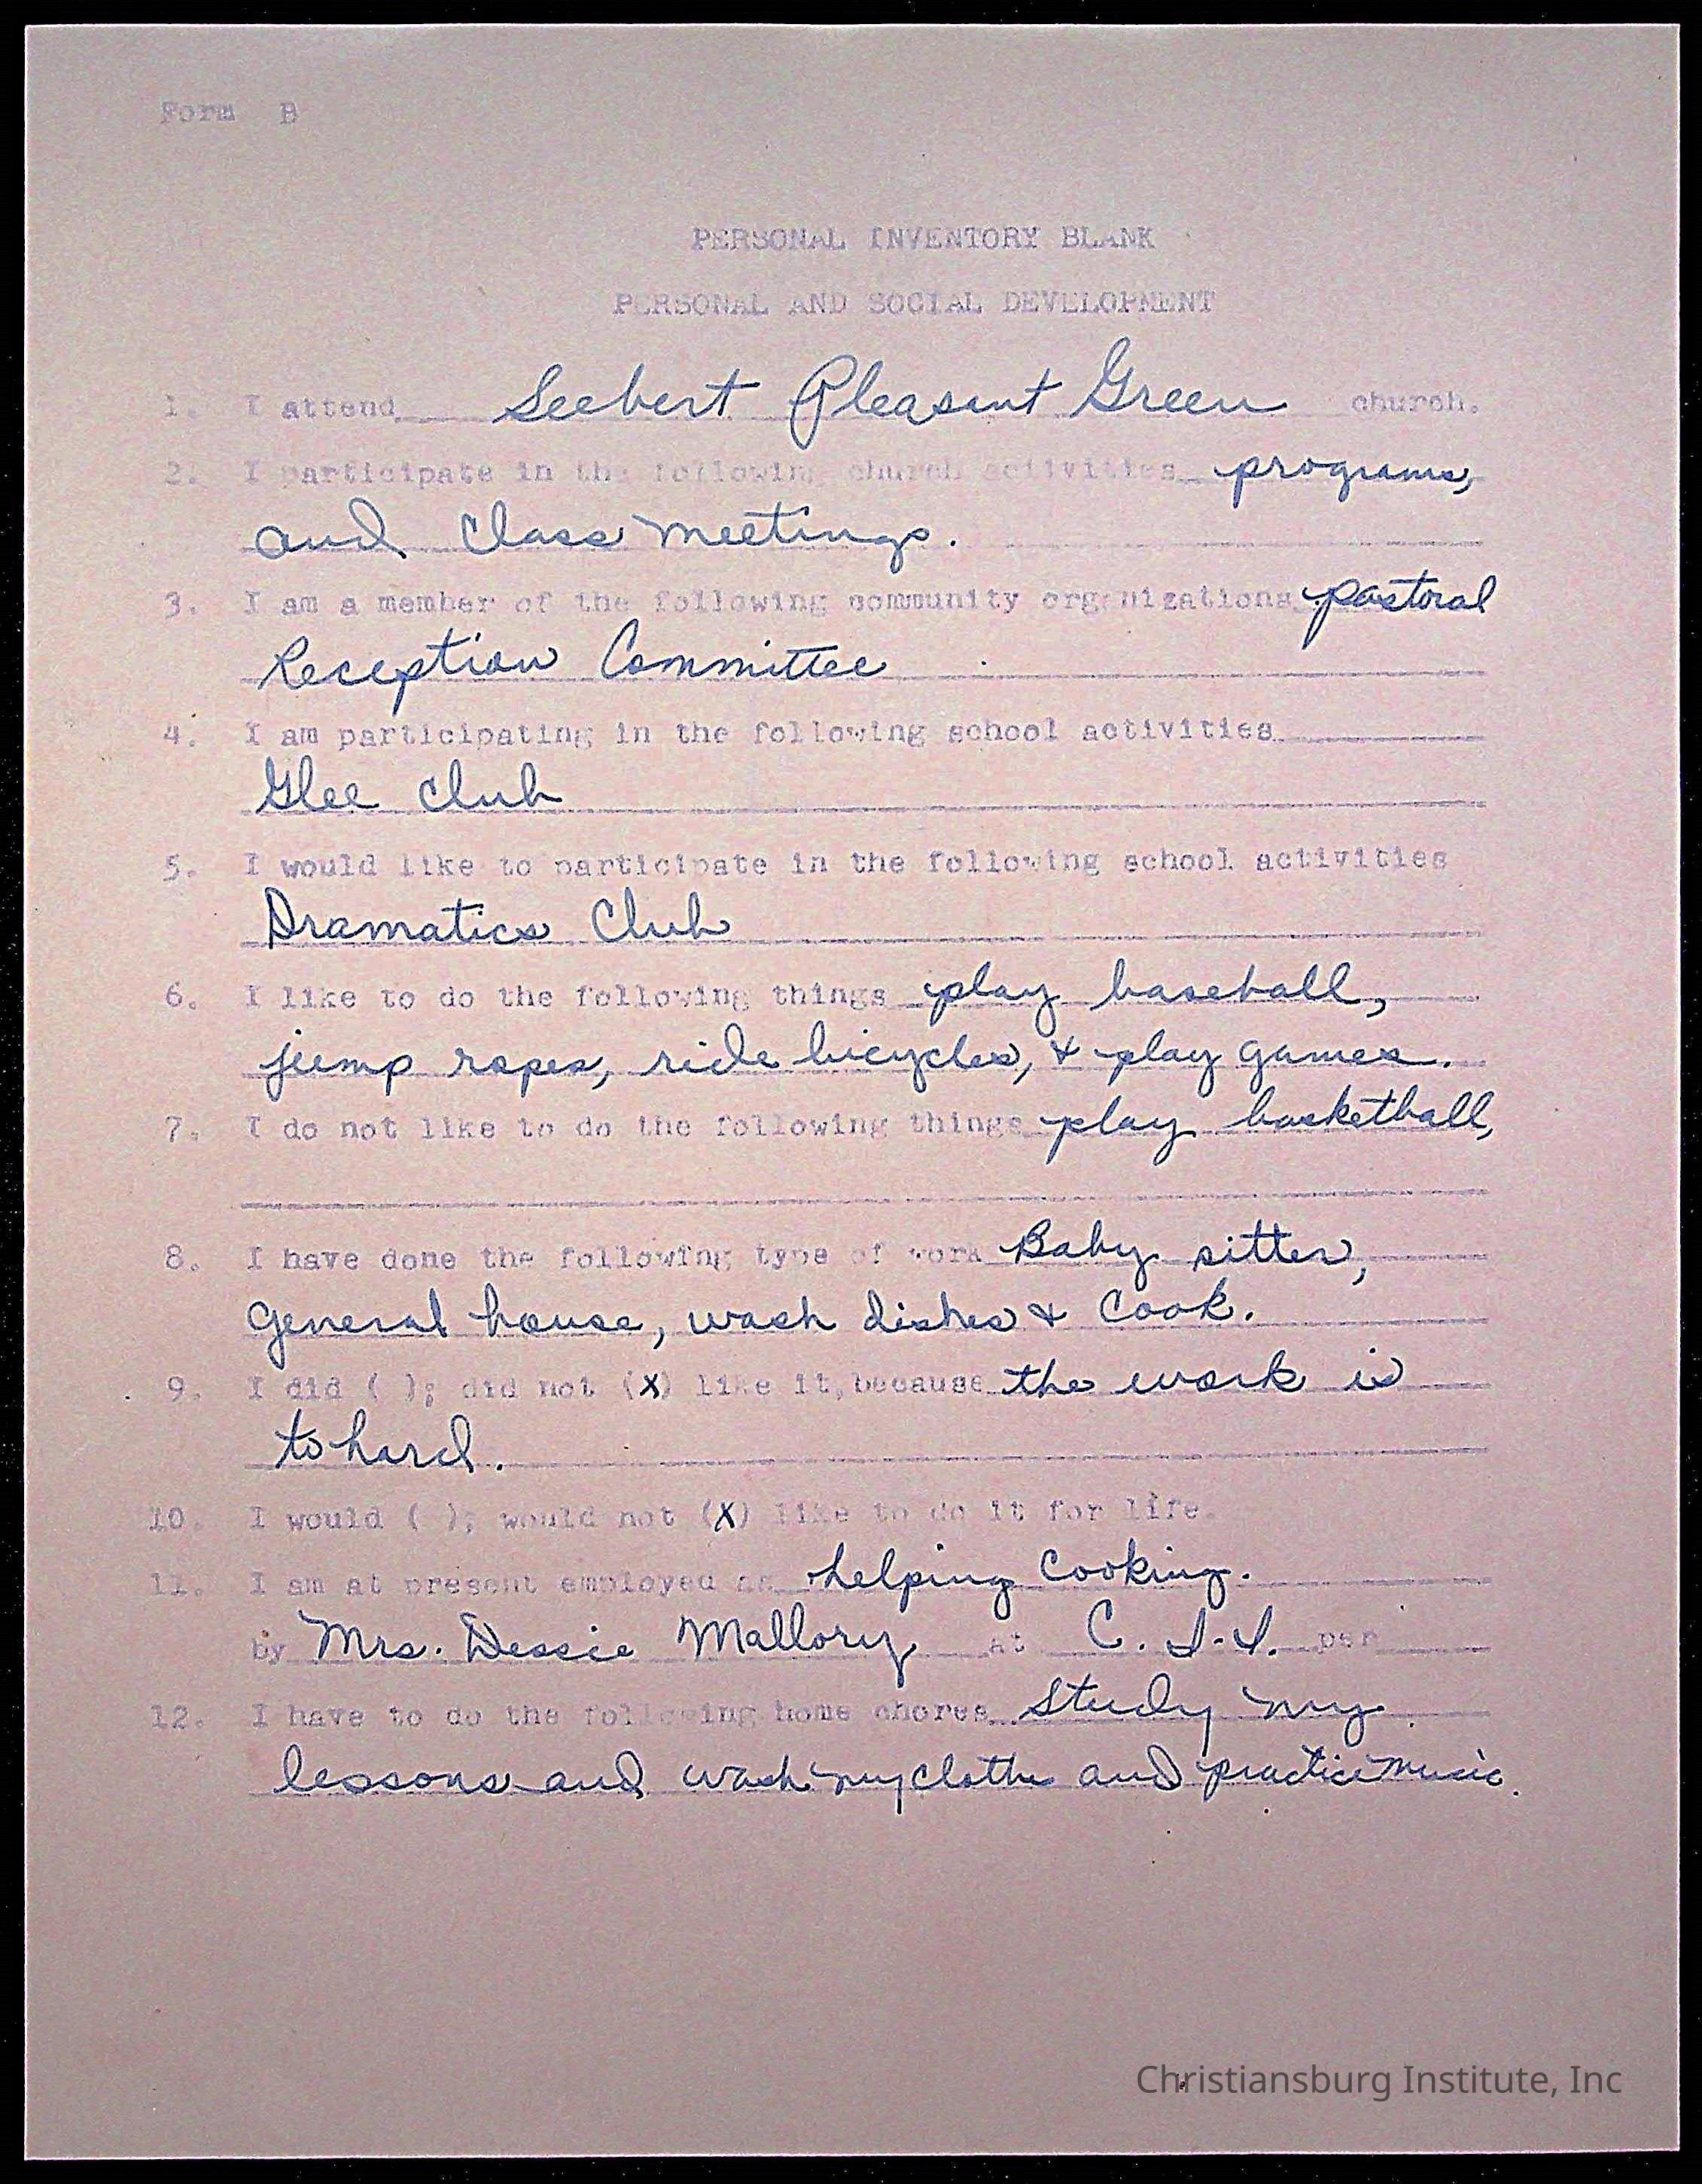 Form B
PERSONAL INVENTORY BLANK
PERSONAL AND SOCIAL DEVELOPMENT
1. I attend Seebert Pleasant Green church.
2. I participate in the following church activities programs,
and Class meetings.
3. I am a member of the following community organizations pastoral
Reception Committee
4. I am participating in the following school activities
Glee club
5. I would like to participate in the following school activities
Dramatics Club
6. I like to do the following things play baseball,
jump ropes, ride bicycles, & play games.
7. I do not like to do the following things play basketball,
8. I have done the following type of work Baby sitter,
General house, wash dishes & Cook.
9. I did ( ); did not (X) like it, because the work is
to hard.
10. I would ( ); would not (X) like to do it for life.
11. I am at present employed as helping Cooking.
by Mrs. Dessie Mallory at C. I. I. per
12. I have to do the following home chores Study my
lessons and wash my clothe and practice music.
Christiansburg Institute, Inc